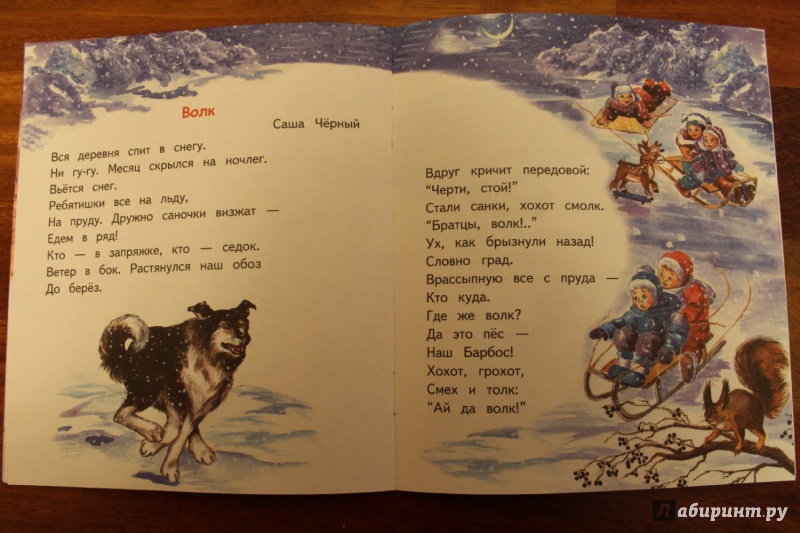 Волк
Саша Чёрный
Вся деревня спит в снегу.
Ни гу-гу. Месяц скрылся на ночлег.
Вьётся снег.
Ребятишки все на льду,
На пруду. Дружно саночки визжат —
Едем в ряд!
Кто — в запряжке, кто — седок.
Ветер в бок. Растянулся наш обоз
До берёз.
Вдруг кричит передовой:
“Черти, стой!”
Стали санки, хохот смолк.
“Братцы, волк!..”
Ух, как брызнули назад!
Словно град.
Врассыпную все с пруда —
Кто куда.
Где же волк?
Да это пёс —
Наш Барбос!
Хохот, грохот,
Смех и толк:
“Ай да волк!”
Лабиринт.ру